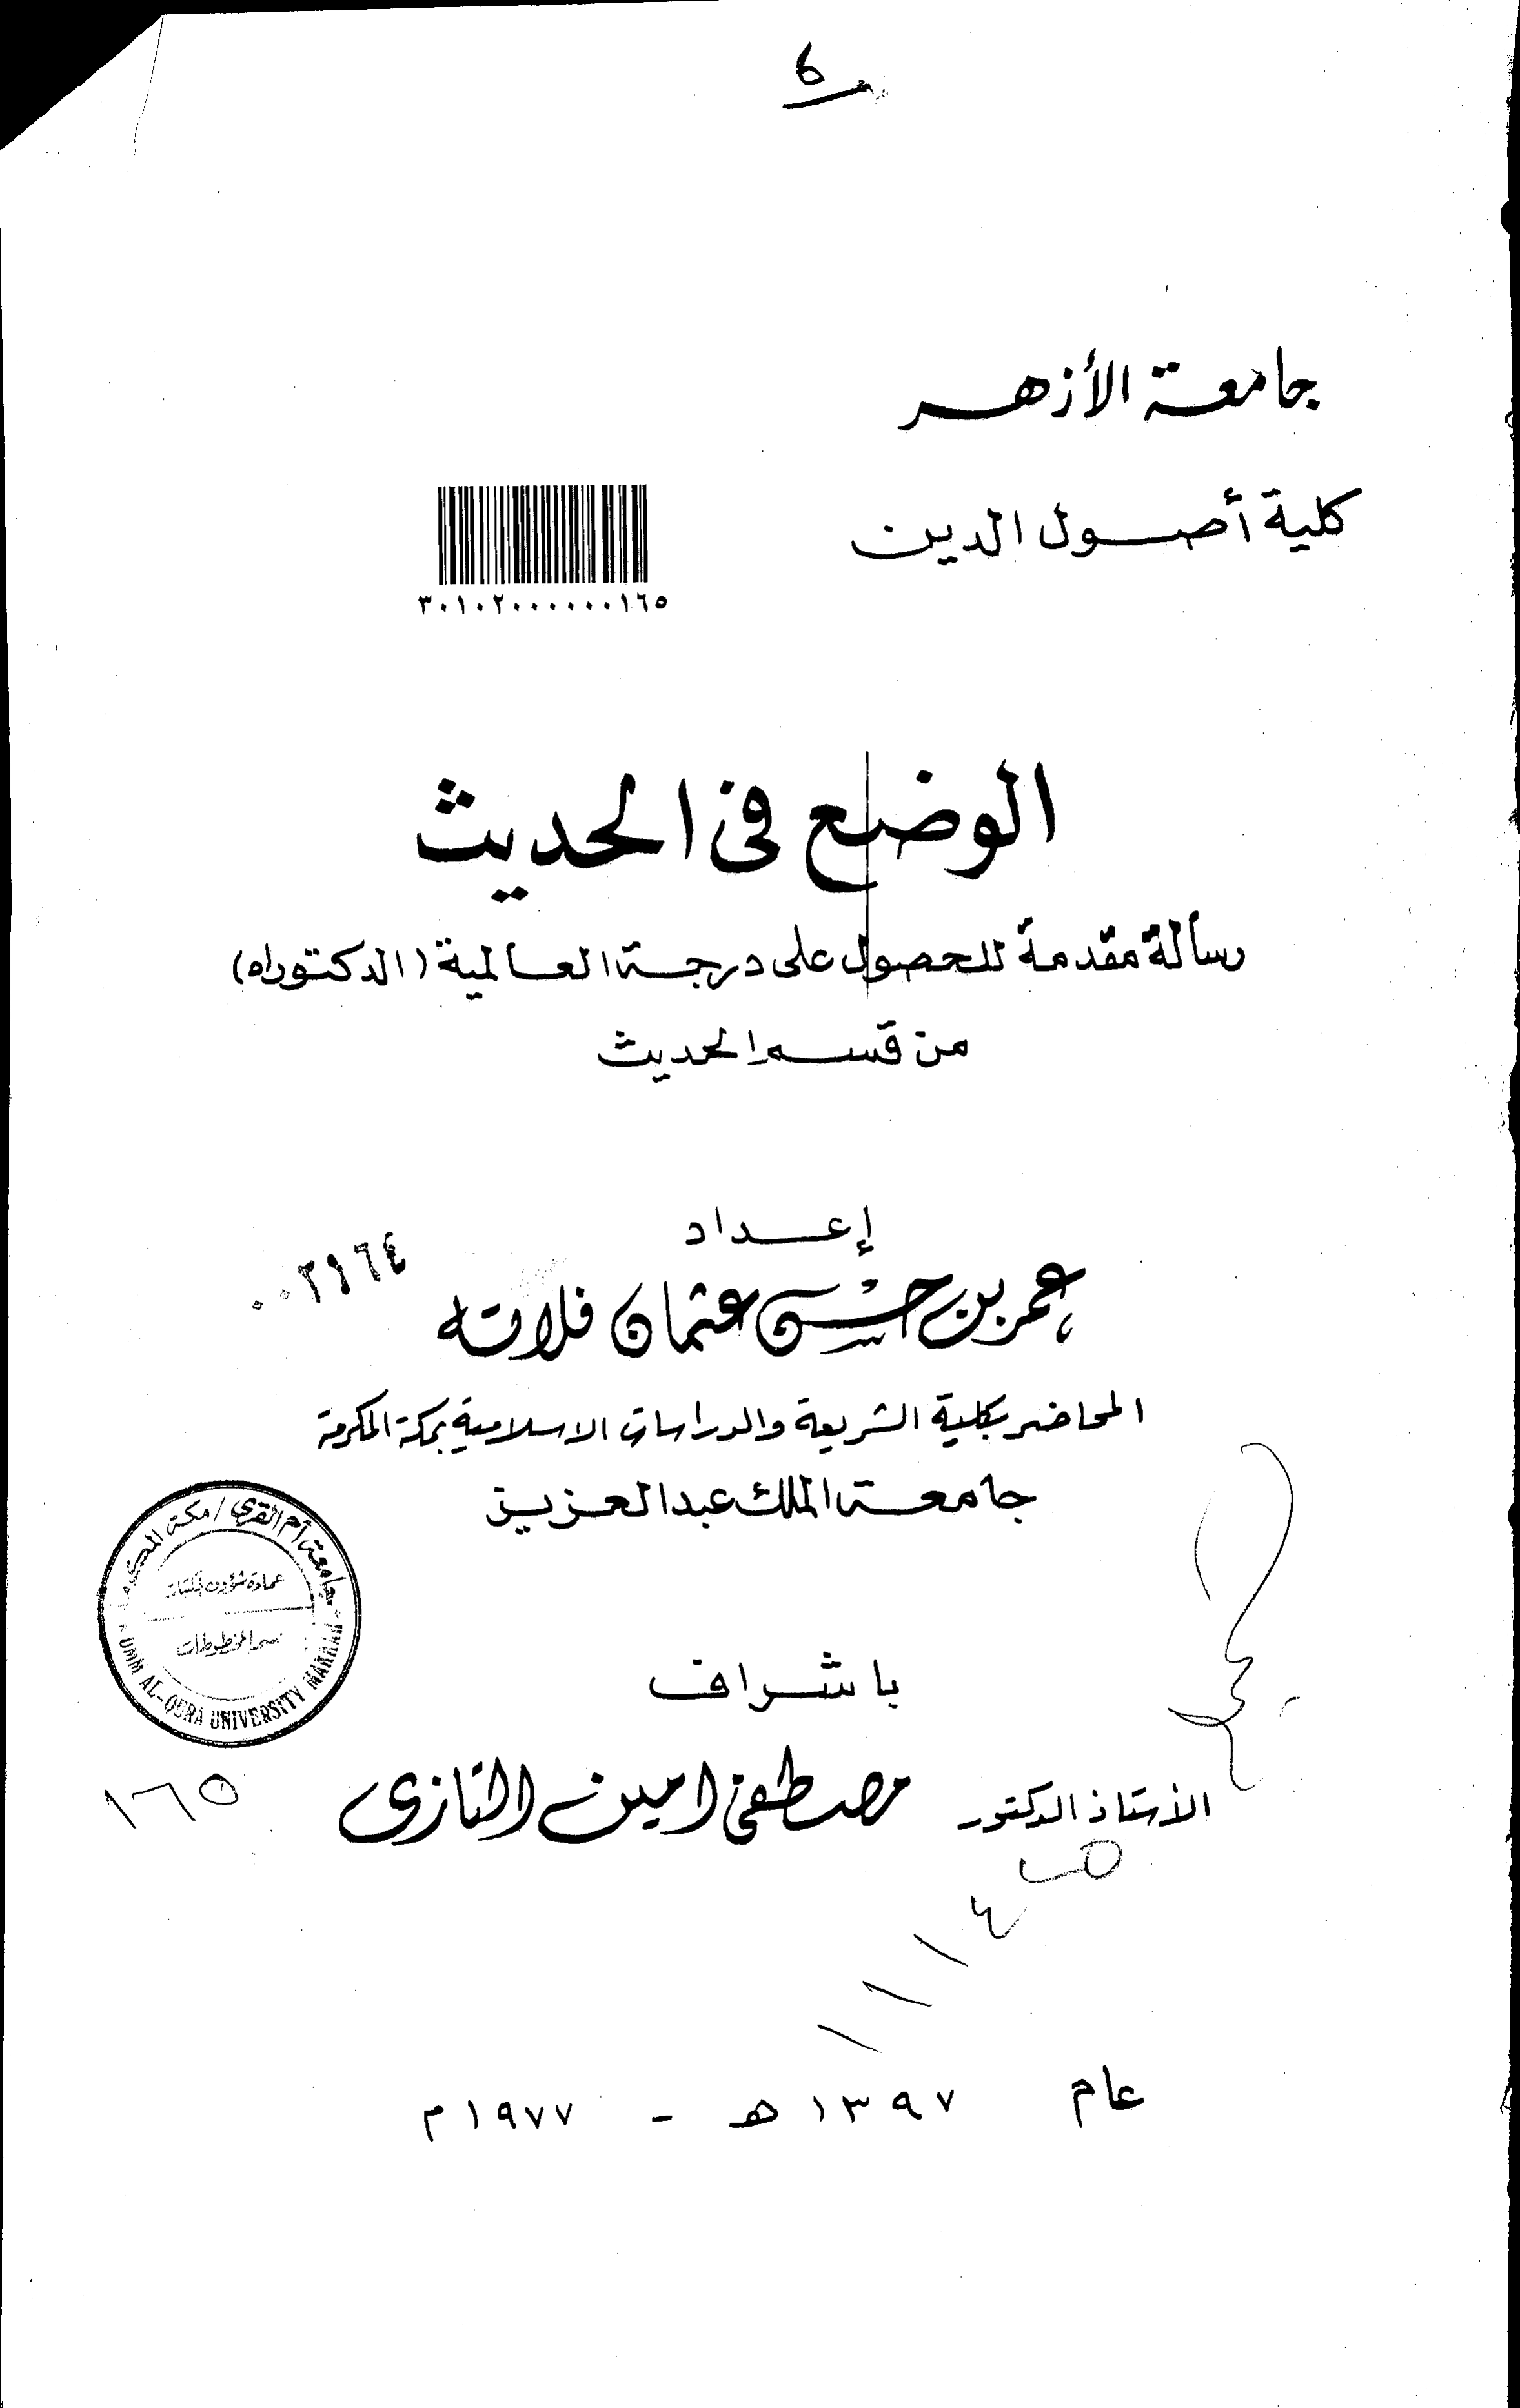 جامعة الأزهر
كلية أصول الدين
٣٠١٠٢٠٠٠٠٠٠١٦٥
الوضع في الحديث
رسالة مقدمة للحصول على درجة العالمية (الدكتوراه)
من قسم الحديث
إعداد
٠٠٢١٦٤
عمر بن حسن عثمان فلاته
المحاضر بكلية الشريعة والدراسات الاسلامية بمكة المكرمة
جامعة الملك عبد العزيز
جامعة أم القرى / مكة المكرمة
عمادة شؤون المكتبات
قسم المخطوطات
UMM AL-QURA UNIVERSITY MAKKAH
باشراف
الأستاذ الدكتور مصطفى امين التازى
١٦٥
عام ١٣٩٧ هـ - ١٩٧٧ م